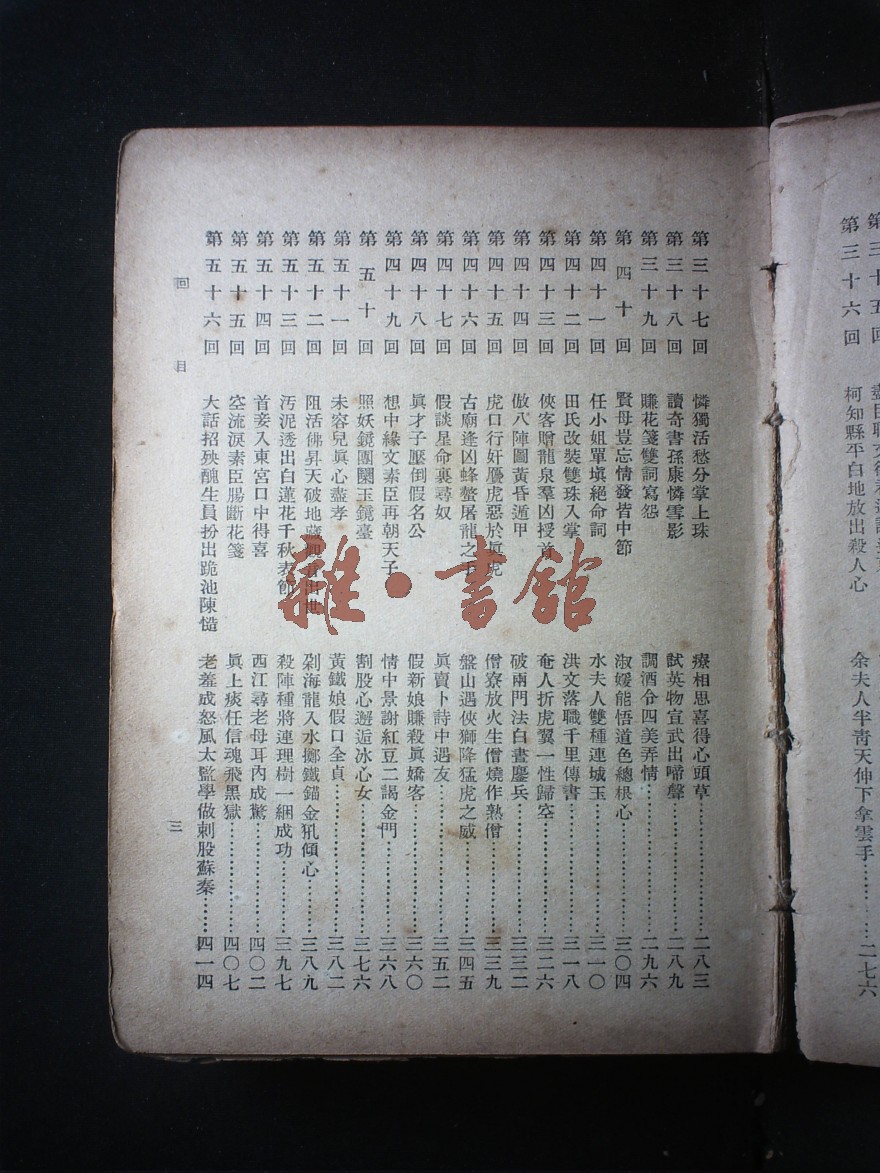 第三十五回
第三十六回 柯知縣平白地放出殺人心 余夫人半靑天伸下拿雲手……二七六
第三十七回 憐獨活愁分掌上珠 療相思喜得心頭草……二八三
第三十八回 讀奇書孫康憐雪影 試英物宣武出啼聲……二八九
第三十九回 賺花箋雙詞寫怨 調酒令四美弄情……二九六
第四十回 賢母豈忘情發皆中節 淑媛能悟道色總根心……三〇四
第四十一回 任小姐單塡絕命詞 水夫人雙種連城玉……三一〇
第四十二回 田氏改裝雙珠入掌 洪文落職千里傳書……三一八
第四十三回 俠客贈龍泉羣凶授首 奄人折虎翼一性歸空……三二六
第四十四回 倣八陣圖黃昏遁甲 破兩門法白晝鏖兵……三三二
第四十五回 虎口行奸贗虎惡於眞虎 僧寮放火生僧燒作熟僧……三三九
第四十六回 古廟逢凶蜂螫屠龍之手 盤山遇俠獅降猛虎之威……三四五
第四十七回 假談星命裏尋奴 眞賣卜詩中遇友……三五二
第四十八回 眞才子壓倒假名公 假新娘賺殺眞嬌客……三六〇
第四十九回 想中緣文素臣再朝天子 情中景謝紅豆二謁金門……三六八
第五十回 照妖鏡團圞玉鏡臺 割股心邂逅冰心女……三七六
第五十一回 未容兒眞心盡孝 黃鐵娘假口全貞……三八二
第五十二回 阻活佛昇天破地藏觀音出世 剁海龍入水擲鐵錨金犼傾心……三八九
第五十三回 汚泥透出白蓮花千秋表節 殺陣種將連理樹一綑成功……三九七
第五十四回 首妾入東宮口中得喜 西江尋老母耳內成驚……四〇二
第五十五回 空流淚素臣腸斷花箋 眞上痰任信魂飛黑獄……四〇七
第五十六回 大話招殃醜生員扮出跪池陳慥 老羞成怒風太監學做刺股蘇秦……四一四
回目 三
雜·書館